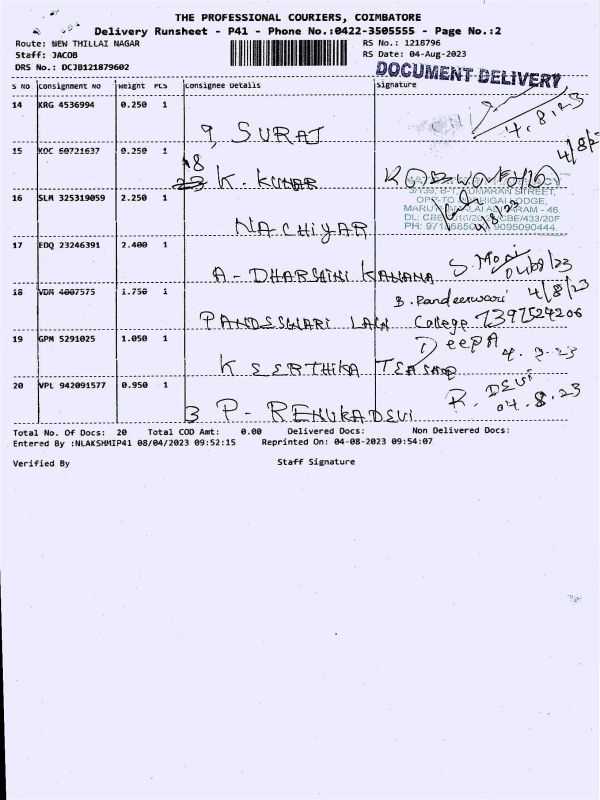 THE PROFESSIONAL COURIERS, COIMBATORE
Delivery Runsheet - P41 - Phone No.:0422-3505555 - Page No.:2
Route: NEW THILLAI NAGAR RS No.: 1218796
Staff: JACOB RS Date: 04-Aug-2023
DRS No.: DCJB121879602
DOCUMENT DELIVERY
S No Consignment No Weight PCS Consignee Details Signature
14 KRG 4536994 0.250 1
9, SURAJ 4.8.23
15 KOC 60721637 0.250 1
18 K. KUMAR
16 SLM 325319059 2.250 1
STREET,
LODGE,
- 46
9095090444
4/8/23
NACHIYAR
17 EDQ 23246391 2.400 1
A - DHARSHINI KANANA S Moni 04/08/23
18 VDM 4007575 1.750 1
B. Pandeeswari 4/8/23
PANDESWARI LAW College 7397524206
19 GPM 5291025 1.050 1
Deepa
KEERTHIKA
20 VPL 942091577 0.950 1
R. DEVI
04.8.23
3 P - RENUKADEVI
Total No. Of Docs: 20 Total COD Amt: 0.00 Delivered Docs: Non Delivered Docs:
Entered By :NLAKSHMIP41 08/04/2023 09:52:15 Reprinted On: 04-08-2023 09:54:07
Verified By Staff Signature